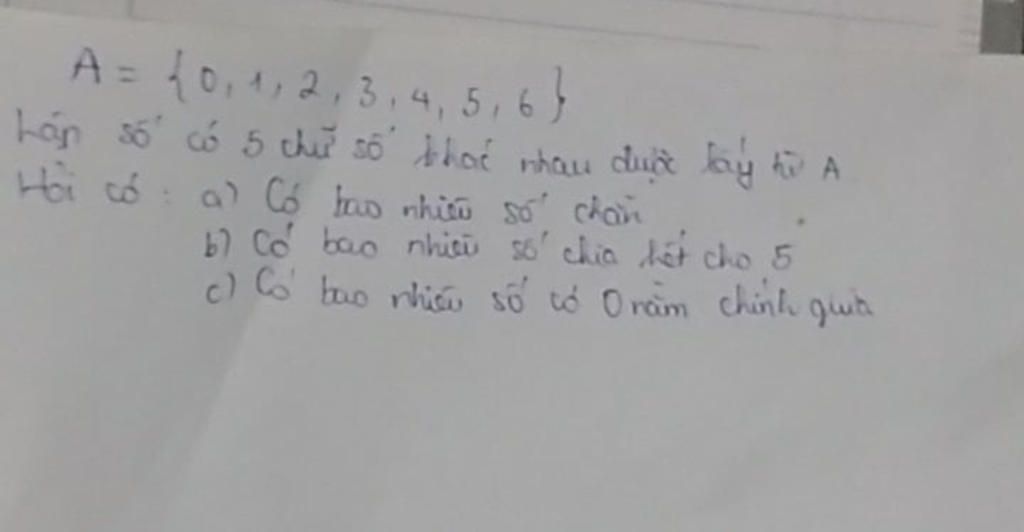 A = {0, 1, 2, 3, 4, 5, 6}
Lập số có 5 chữ số khác nhau được lấy từ A
Hỏi có : a) Có bao nhiêu số chẵn
b) Có bao nhiêu số chia hết cho 5
c) Có bao nhiêu số có 0 nằm chính giữa